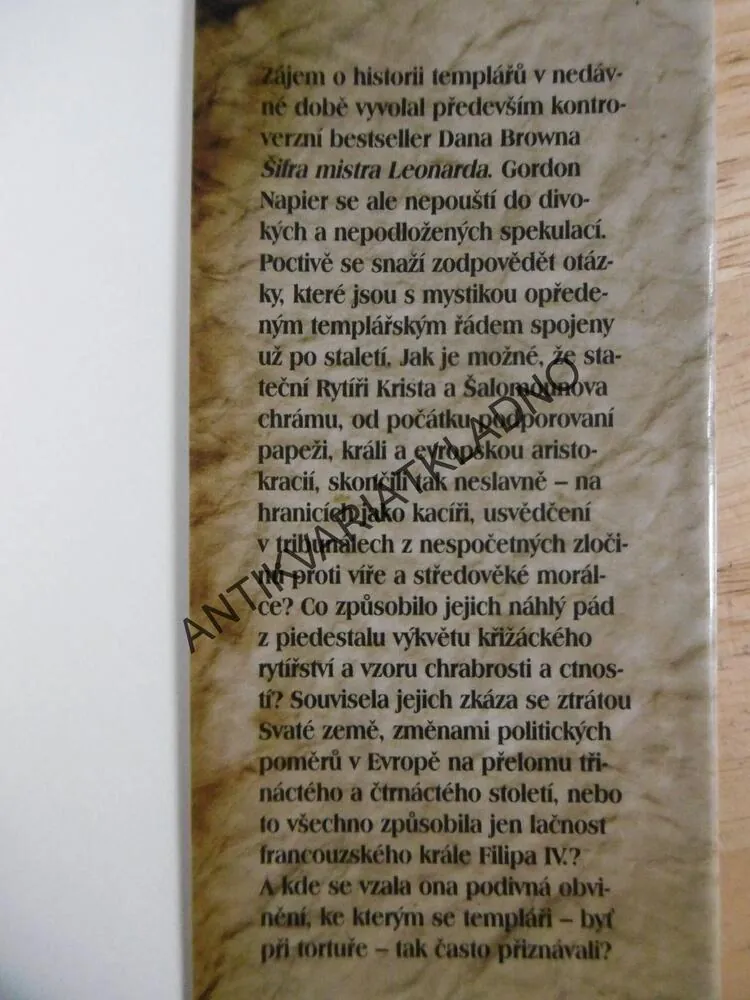 Zájem o historii templářů v nedáv-
né době vyvolal především kontro-
verzní bestseller Dana Browna
Šifra mistra Leonarda. Gordon
Napier se ale nepouští do divo-
kých a nepodložených spekulací.
Poctivě se snaží zodpovědět otáz-
ky, které jsou s mystikou opřede-
ným templářským řádem spojeny
už po staletí. Jak je možné, že sta-
teční Rytíři Krista a Šalomounova
chrámu, od počátku podporovaní
papeži, králi a evropskou aristo-
kracií, skončili tak neslavně – na
hranicích jako kacíři, usvědčení
v tribunálech z nespočetných zloči-
nů proti víře a středověké morál-
ce? Co způsobilo jejich náhlý pád
z piedestalu výkvětu křižáckého
rytířství a vzoru chrabrosti a ctnos-
tí? Souvisela jejich zkáza se ztrátou
Svaté země, změnami politických
poměrů v Evropě na přelomu tři-
náctého a čtrnáctého století, nebo
to všechno způsobila jen lačnost
francouzského krále Filipa IV.?
A kde se vzala ona podivná obvi-
nění, ke kterým se templáři – byť
při tortuře – tak často přiznávali?
ANTIKVARIATKLADNO